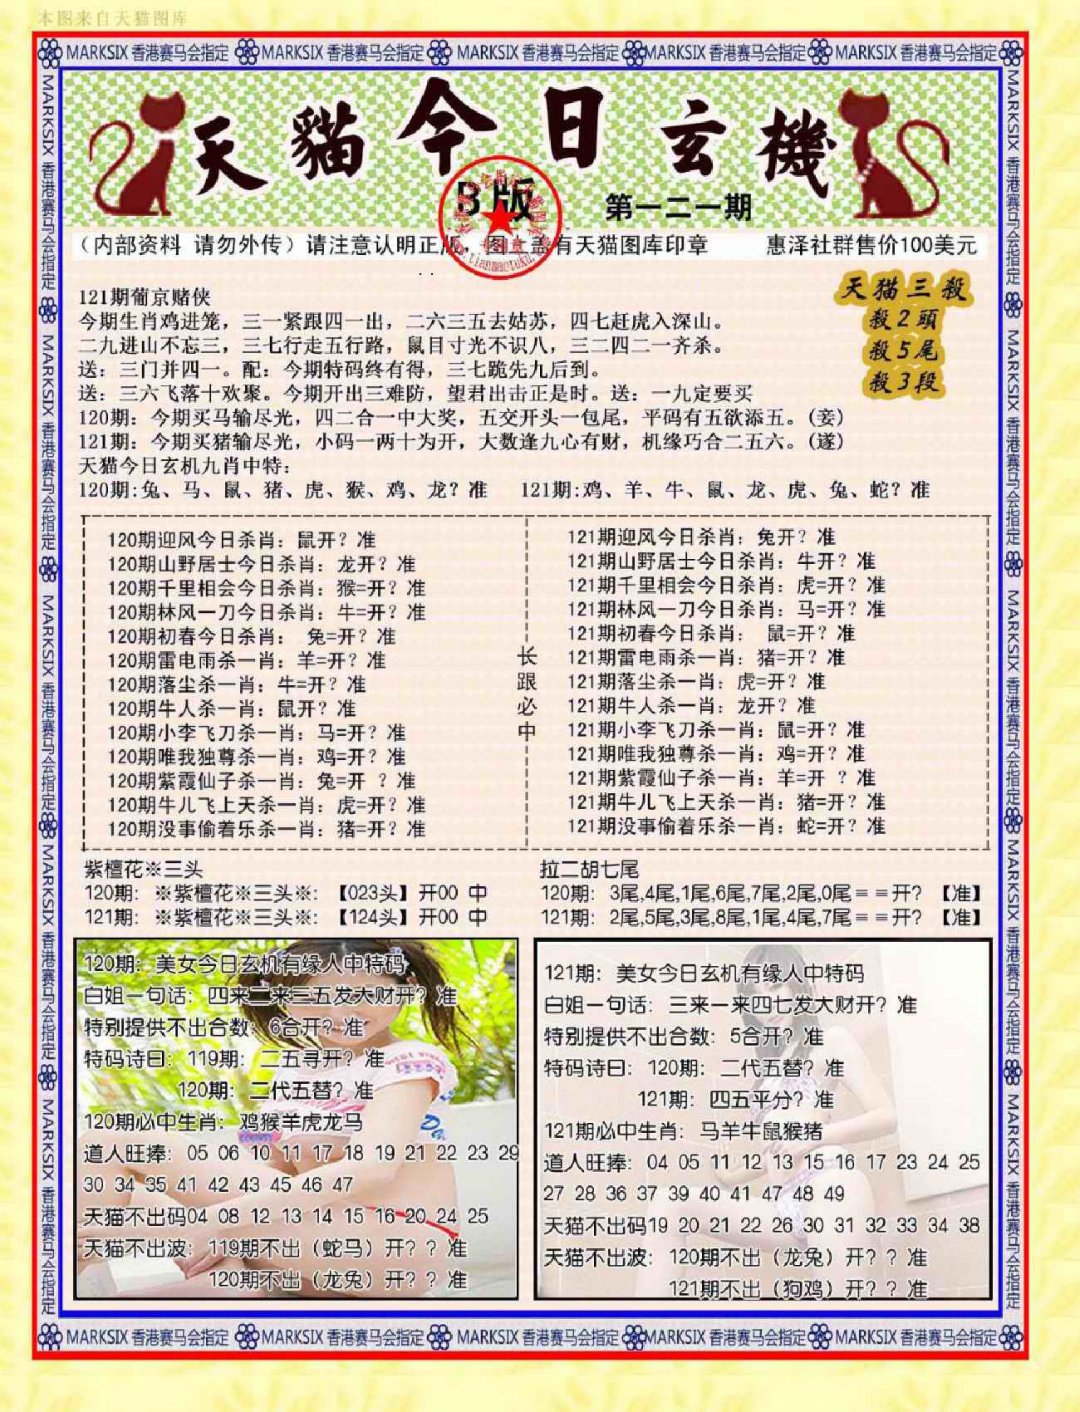 本图来自天猫图库
MARKSIX 香港赛马会指定 MARKSIX 香港赛马会指定 MARKSIX 香港赛马会指定 MARKSIX 香港赛马会指定 MARKSIX 香港赛马会指定
MARKSIX 香港赛马会指定 MARKSIX 香港赛马会指定 MARKSIX 香港赛马会指定 MARKSIX 香港赛马会指定 MARKSIX 香港赛马会指定
MARKSIX 香港赛马会指定 MARKSIX 香港赛马会指定 MARKSIX 香港赛马会指定 MARKSIX 香港赛马会指定 MARKSIX 香港赛马会指定
天貓今日玄機
B版
第一二一期
(内部资料 请勿外传)请注意认明正版,图上盖有天猫图库印章 惠泽社群售价100美元
天猫三殺
殺2頭
殺5尾
殺3段
121期葡京赌侠
今期生肖鸡进笼,三一紧跟四一出,二六三五去姑苏,四七赶虎入深山。
二九进山不忘三,三七行走五行路,鼠目寸光不识八,三二四二一齐杀。
送:三门并四一。配:今期特码终有得,三七跪先九后到。
送:三六飞落十欢聚。今期开出三难防,望君出击正是时。送:一九定要买
120期:今期买马输尽光,四二合一中大奖,五交开头一包尾,平码有五欲添五。(妾)
121期:今期买猪输尽光,小码一两十为开,大数逢九心有财,机缘巧合二五六。(遂)
天猫今日玄机九肖中特:
120期:兔、马、鼠、猪、虎、猴、鸡、龙?准 121期:鸡、羊、牛、鼠、龙、虎、兔、蛇?准
120期迎风今日杀肖:鼠开?准
120期山野居士今日杀肖:龙开?准
120期千里相会今日杀肖:猴=开?准
120期林风一刀今日杀肖:牛=开?准
120期初春今日杀肖: 兔=开?准
120期雷电雨杀一肖:羊=开?准
120期落尘杀一肖:牛=开?准
120期牛人杀一肖:鼠开?准
120期小李飞刀杀一肖:马=开?准
120期唯我独尊杀一肖:鸡=开?准
120期紫霞仙子杀一肖:兔=开 ?准
120期牛儿飞上天杀一肖:虎=开?准
120期没事偷着乐杀一肖:猪=开?准
长跟必中
121期迎风今日杀肖:兔开?准
121期山野居士今日杀肖:牛开?准
121期千里相会今日杀肖:虎=开?准
121期林风一刀今日杀肖:马=开?准
121期初春今日杀肖: 鼠=开?准
121期雷电雨杀一肖:猪=开?准
121期落尘杀一肖:虎=开?准
121期牛人杀一肖:龙开?准
121期小李飞刀杀一肖:鼠=开?准
121期唯我独尊杀一肖:鸡=开?准
121期紫霞仙子杀一肖:羊=开 ?准
121期牛儿飞上天杀一肖:猪=开?准
121期没事偷着乐杀一肖:蛇=开?准
紫檀花※三头
120期: ※紫檀花※三头※: 【023头】开00 中
121期: ※紫檀花※三头※: 【124头】开00 中
拉二胡七尾
120期: 3尾,4尾,1尾,6尾,7尾,2尾,0尾==开? 【准】
121期: 2尾,5尾,3尾,8尾,1尾,4尾,7尾==开? 【准】
120期:美女今日玄机有缘人中特码
白姐一句话:四来二来三五发大财开?准
特别提供不出合数:6合开?准
特码诗曰:119期:二五寻开?准
120期:二代五替?准
120期必中生肖:鸡猴羊虎龙马
道人旺捧:05 06 10 11 17 18 19 21 22 23 29
30 34 35 41 42 43 45 46 47
天猫不出码04 08 12 13 14 15 16 20 24 25
天猫不出波:119期不出(蛇马)开??准
120期不出(龙兔)开??准
121期:美女今日玄机有缘人中特码
白姐一句话:三来一来四七发大财开?准
特别提供不出合数:5合开?准
特码诗曰:120期:二代五替?准
121期:四五平分?准
121期必中生肖:马羊牛鼠猴猪
道人旺捧:04 05 11 12 13 15 16 17 23 24 25
27 28 36 37 39 40 41 47 48 49
天猫不出码19 20 21 22 26 30 31 32 33 34 38
天猫不出波:120期不出(龙兔)开??准
121期不出(狗鸡)开??准
MARKSIX 香港赛马会指定 MARKSIX 香港赛马会指定 MARKSIX 香港赛马会指定 MARKSIX 香港赛马会指定 MARKSIX 香港赛马会指定